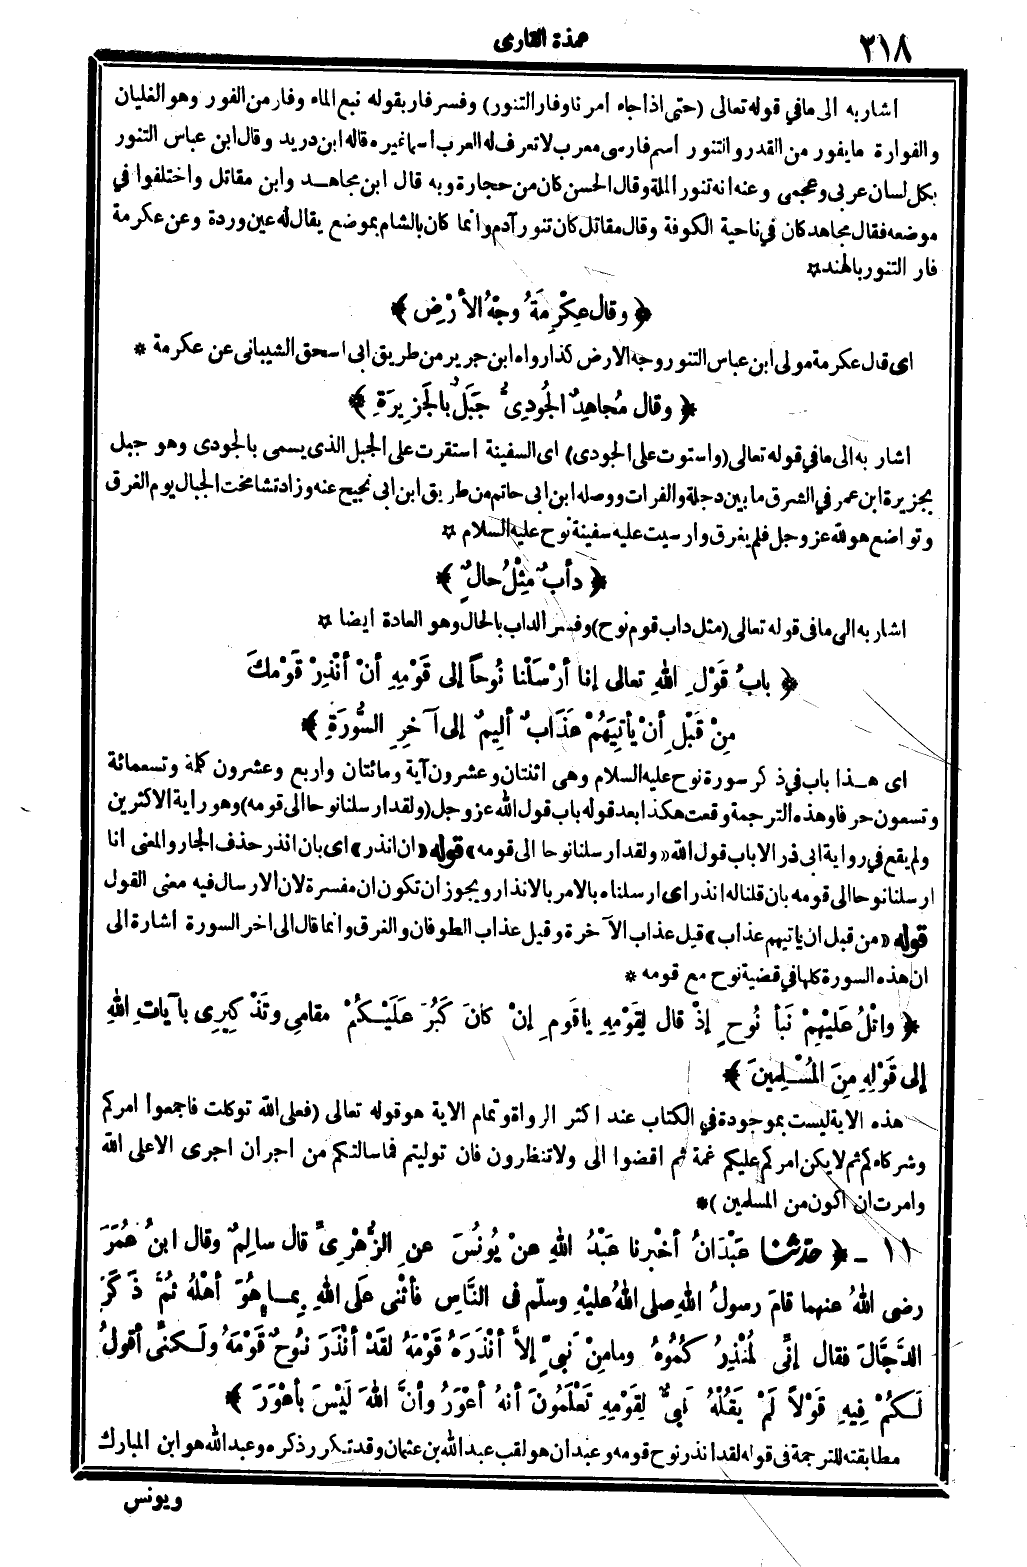 ٢١٨
عمدة القارى
أشار به الى ما في قوله تعالى (حتى اذا جاء أمرنا وفار التنور) وفسر فار بقوله نبع الماء وفار من الفور وهو الغليان
والفوارة ما يفور من القدر والتنور أسم فارسى معرب لا تعرف له العرب أسما غيره قاله ابن دريد وقال ابن عباس التنور
بكل لسان عربى وعجمى وعنه انه تنور الملة وقال الحسن كان من حجارة وبه قال ابن مجاهـد وابن مقاتل واختلفوا في
موضعه فقال مجاهد كان في ناحية الكوفة وقال مقاتل كان تنور آدم وانما كان بالشام بموضع يقال له عين وردة وعن عكرمة
فار التنور بالهند☆
﴿ وقال عِكْرِمَةُ وجْهُ الأرْضِ ﴾
اى قال عكرمة مولى ابن عباس التنور وجه الارض كذا رواه ابن جرير من طريق ابى اسحق الشيبانى عن عكرمة *
﴿ وقال مُجاهِدٌ الجُودِىُّ جَبَلٌ بالجَزِيرَةِ ﴾
اشار به الى ما في قوله تعالى (واستوت على الجودى) اى السفينة استقرت على الجبل الذى يسمى بالجودى وهو جبل
بجزيرة ابن عمر في الشرق ما بين دجلة والفرات ووصله ابن ابى حاتم من طريق ابن ابى نجيح عنه وزاد تشامخت الجبال يوم الغرق
وتواضع هو لله عز وجل فلم يغرق وارسيت عليه سفينة نوح عليه السلام ☆
﴿ دأبٌ مِثْلُ حالٍ ﴾
اشار به الى ما فى قوله تعالى (مثل داب قوم نوح) وفسر الداب بالحال وهو العادة ايضا ☆
﴿ بابُ قَوْلِ اللهِ تعالى إنا أرْسَلْنا نُوحاً إلى قَوْمِهِ أنْ أنْذِرْ قَوْمَكَ
مِنْ قَبْلِ أنْ يأتِيَهُمْ عَذَابٌ ألِيمٌ إلى آخِرِ السُّورَةِ ﴾
اى هـذا باب في ذكر سورة نوح عليه السلام وهى اثنتان وعشرون آية ومائتان واربع وعشرون كلمة وتسعمائة
وتسعون حرفا وهذه الترجمة وقعت هكذا بعد قوله باب قول الله عز وجل (ولقد ارسلنا نوحا الى قومه) وهو راية الاكثرين
ولم يقع في رواية ابى ذر الا باب قول الله «ولقد ارسلنا نوحا الى قومه» قوله «ان انذر» اى بان انذر حذف الجار والمعنى انا
ارسلنا نوحا الى قومه بان قلنا له انذر اى ارسلناه بالامر بالانذار ويجوز ان تكون ان مفسرة لان الارسال فيه معنى القول
قوله «من قبل ان ياتيهم عذاب» قيل عذاب الآخرة وقيل عذاب الطوفان والغرق وانما قال الى اخر السورة اشارة الى
ان هذه السورة كلها في قضية نوح مع قومه *
﴿ واتْلُ عَلَيْهِمْ نَبأ نُوحٍ إذْ قال لِقَوْمِهِ ياقَومِ إنْ كانَ كَبُرَ عَلَيْـكُمْ مقامِى وتَذْكِيرِى بآياتِ اللهِ
إلى قَوْلِهِ مِنَ المُسْـلِمِينَ ﴾
هذه الاية ليست بموجودة في الكتاب عند اكثر الرواة وتمام الاية هو قوله تعالى (فعلى الله توكلت فاجمعوا امركم
وشركاءكم ثم لا يكن امركم عليكم غمة ثم اقضوا الى ولا تنظرون فان توليتم فما سالتكم من اجر ان اجرى الا على الله
وامرت ان اكون من المسلمين )*
١١ ـ ﴿ حدّثنا عَبْدَانُ أخْبرنا عَبْدُ اللهِ عنْ يُونُسَ عنِ الزُّهْرِىِّ قال سالِمٌ وقال ابنُ عُمَرَ
رضى اللهُ عنهما قامَ رسولُ اللهِ صلى اللهُ عليْهِ وسلّم فى النَّاسِ فأثْنى عَلَى اللهِ بِمـا هُوَ أهْلُهُ ثُمَّ ذَكَرَ
الدَّجَّالَ فقال إنِّى لَمُنْذِرُ كُمُوهُ وما مِنْ نَبىٍّ إلاَّ أنْذَرَهُ قَوْمَهُ لقَدْ أنْذَرَ نُوحٌ قَوْمَهُ ولَـكنِّى أقولُ
لَـكُمْ فِيهِ قَوْلاً لَمْ يَقُلْهُ نَبىٌّ لِقَوْمِهِ تَعْلَمُونَ أنهُ أعْوَرُ وأنَّ اللهَ لَيْسَ بأعْوَرَ ﴾
مطابقته للترجمة فى قوله لقد انذر نوح قومه وعبدان هو لقب عبد الله بن عثمان وقد تكرر ذكره وعبد الله هو ابن المبارك
ويونس